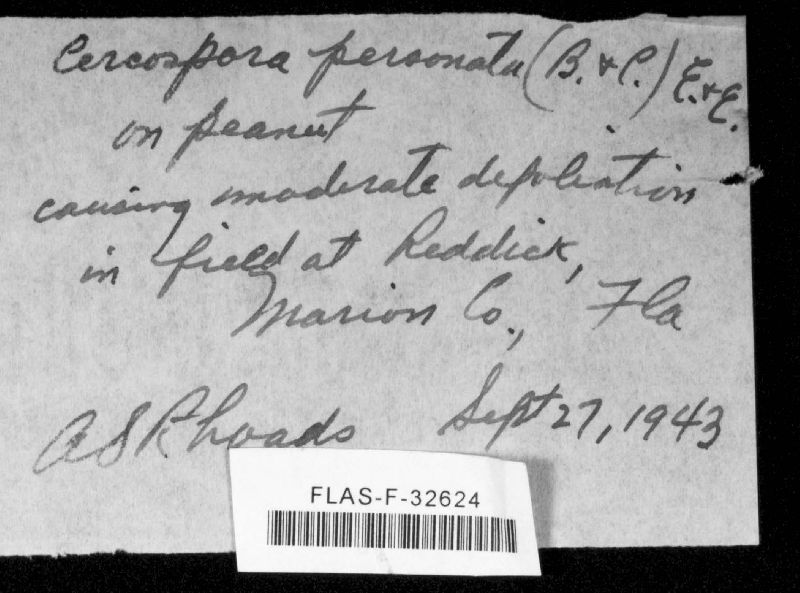 Cercospora personata (B. & C.) E. & E.
on peanut
causing moderate defoliation
in field at Reddick,
Marion Co., Fla
A S Rhoads Sept 27, 1943
FLAS-F-32624